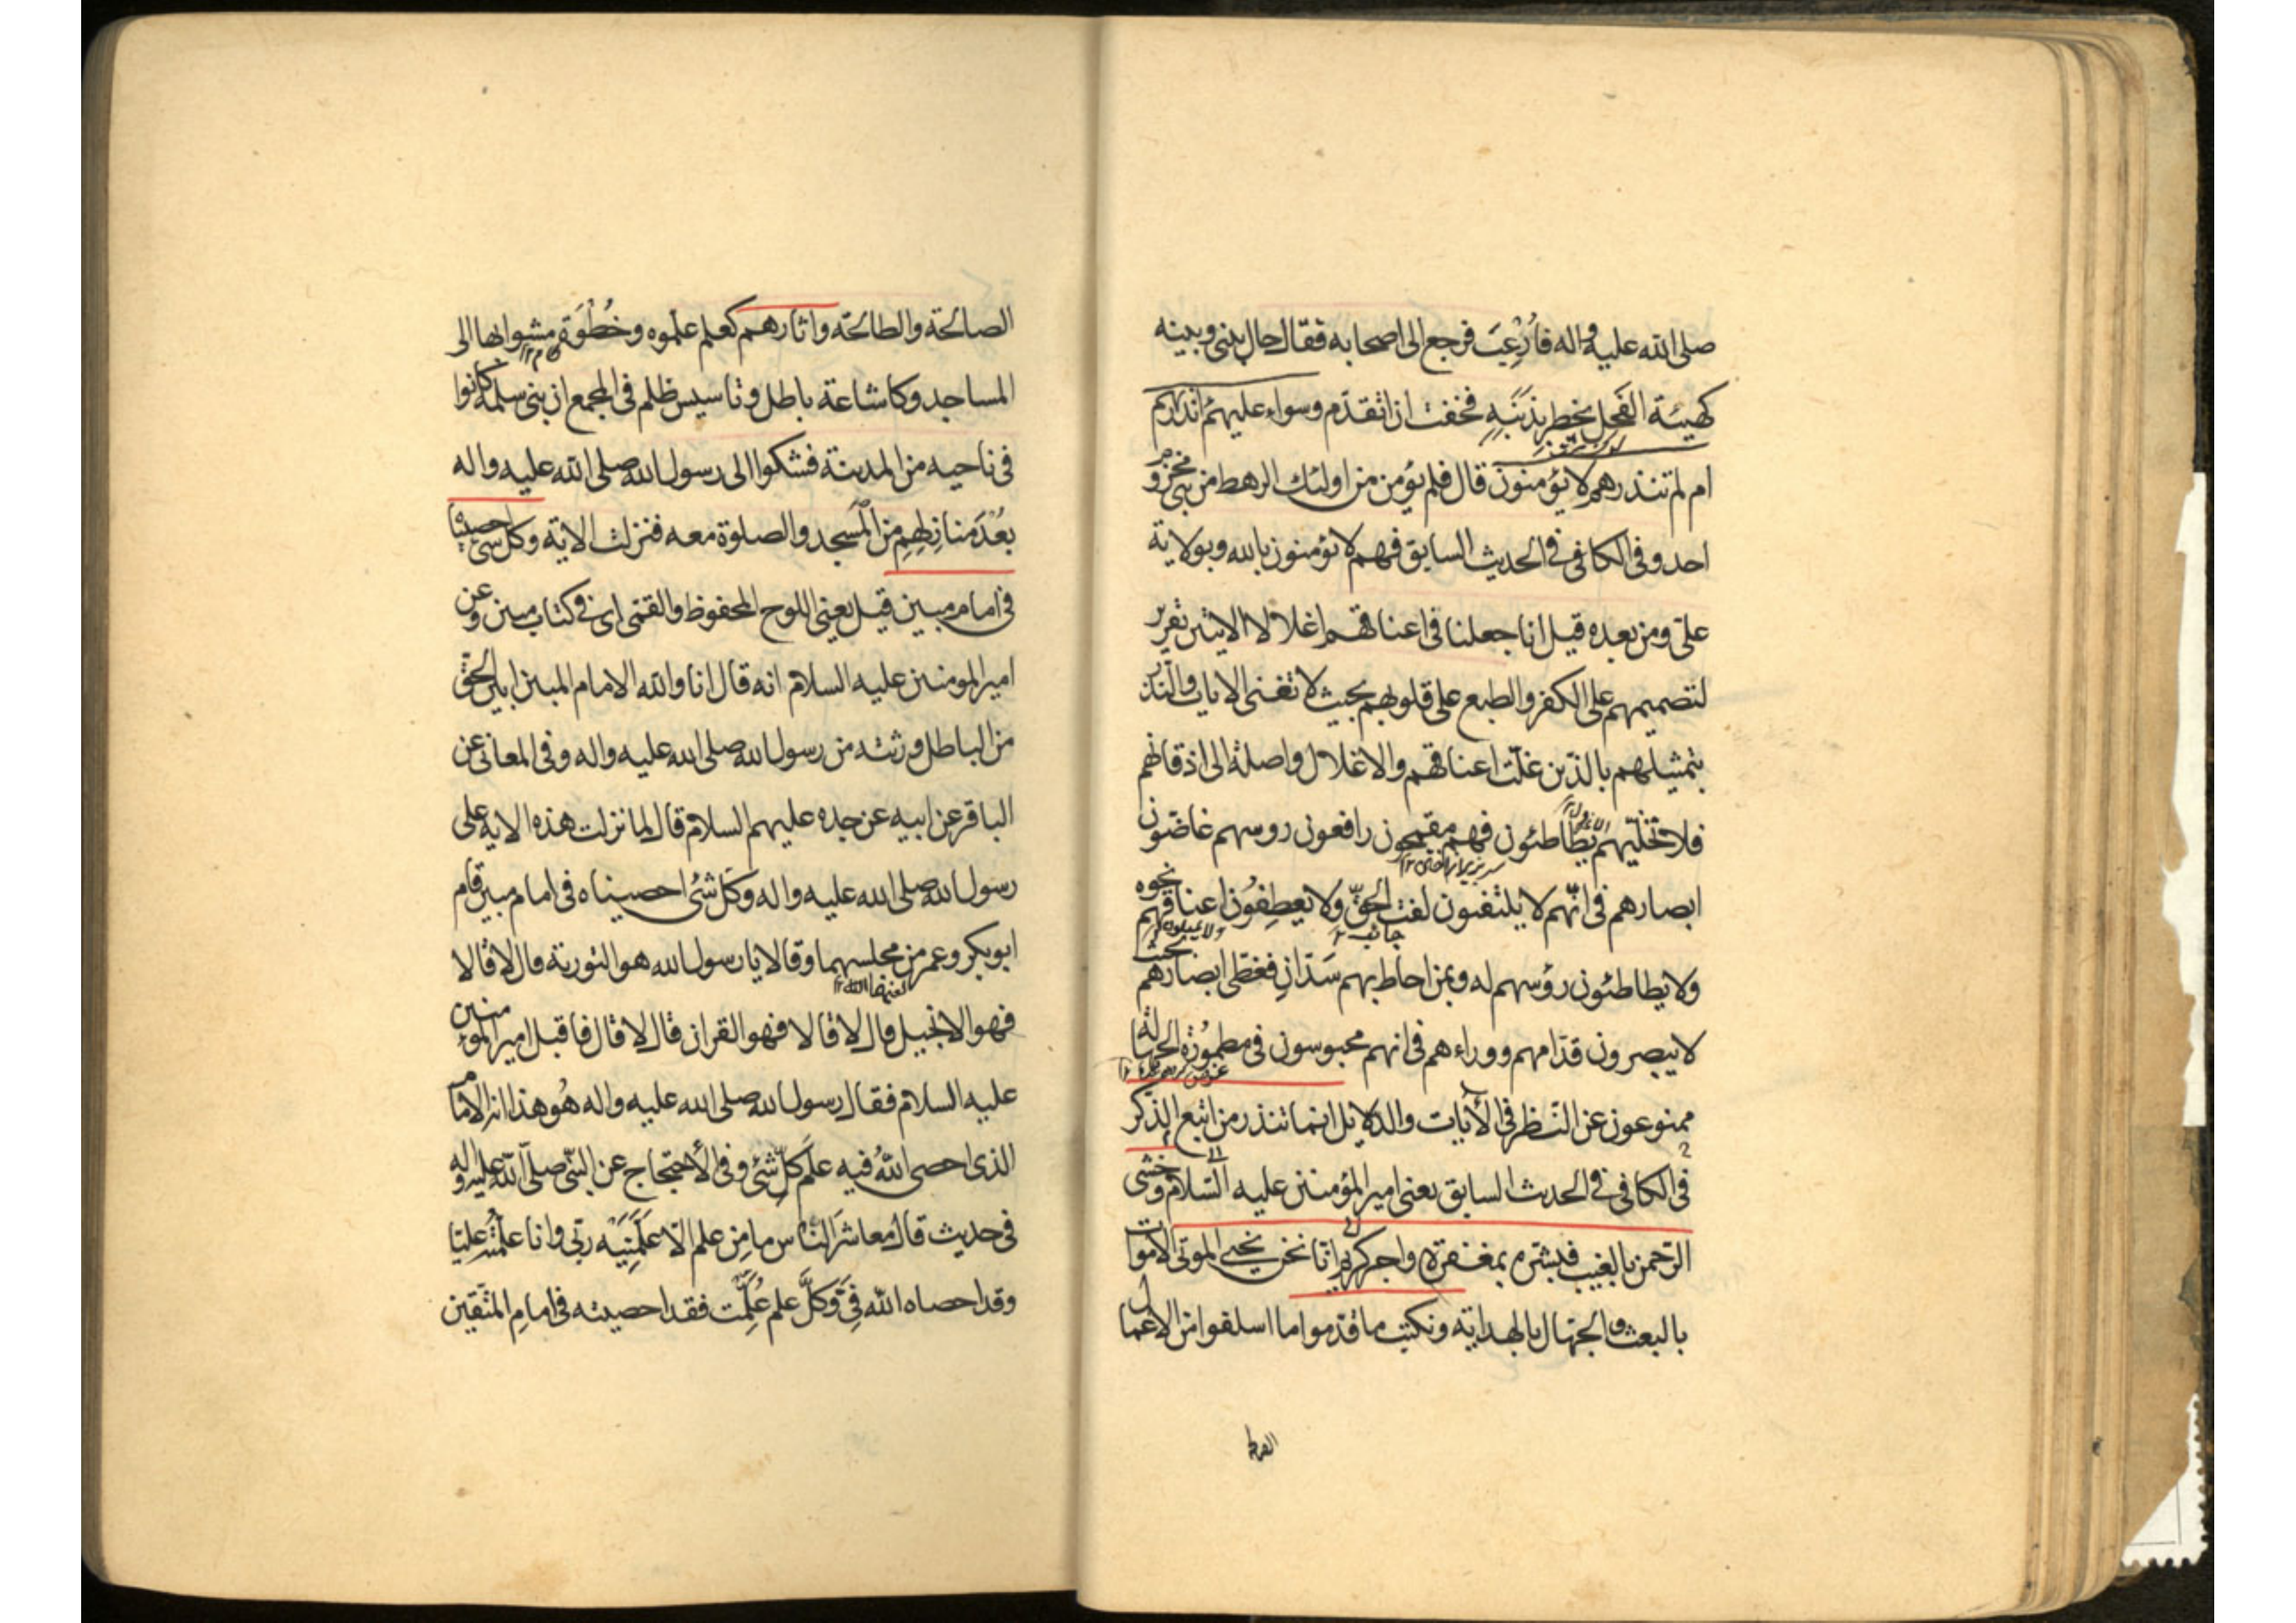 صلى الله عليه واله فارعب فرجع الى اصحابه فقال حال بينى وبينه
كهيئة الفحل يخطر بذنبه فخفت ان اتقدم وسواء عليهم ءانذرتهم
ام لم تنذرهم لا يؤمنون قال فلم يؤمن من اولئك الرهط من بنى مخزوم
احد وفى الكافى فى الحديث السابق فهم لا يؤمنون بالله وبولاية
على ومن بعده قيل انا جعلنا فى اعناقهم اغلالا الايتين تقرير
لتصميمهم على الكفر والطبع على قلوبهم بحيث لا تغنى الايات والنذر
بتمثيلهم بالذين غلّت اعناقهم والاغلال واصلة الى اذقانهم
فلا تخلّيهم يطاطئون فهم مقمحون رافعون روسهم غاضون
ابصارهم فى انّهم لا يلتفتون لفت الحقّ ولا يعطفون اعناقهم نحوه
جانب
ولا يطاطئون رؤسهم له وبمن احاط بهم سدّان فغطى ابصارهم بحيث
لا يبصرون قدّامهم ووراءهم فى انهم محبوسون فى مطمورة الجهالة
ممنوعون عن النّظر فى الأيات والدلايل انما تنذر من اتبع الذكر
فى الكافى فى الحديث السابق يعنى امير المؤمنين عليه السّلام وخشى
الرّحمن بالغيب فبشّره بمغفرة واجر كريم انّا نحن نحيى الموتى الاموات
بالبعث والجهّال بالهداية ونكتب ما قدّموا ما اسلفوا من الاعمال
الصالحة والطالحة واثارهم كعلم علموه وخُطْوَة مشوا بها الى
المساجد وكاشاعة باطل وتاسيس ظلم فى المجمع ان بنى سلمة كانوا
فى ناحيه من المدينة فشكوا الى رسول الله صلى الله عليه واله
بُعْدَ منازلهم من المسجد والصلوة معه فنزلت الاية وكل شئ احصيناه
فى امام مبين قيل يعنى اللوح المحفوظ والقمى اى فى كتاب مبين وعن
امير المومنين عليه السلام انه قال انا والله الامام المبين ابيّن الحقّ
من الباطل ورثته من رسول الله صلى الله عليه واله وفى المعانى عن
الباقر عن ابيه عن جده عليهم السلام قال لما نزلت هذه الاية على
رسول الله صلى الله عليه واله وكل شئ احصيناه فى امام مبين قام
ابوبكر وعمر من مجلسهما وقالا يا رسول الله هو التورية قال لا قالا
فهو الانجيل قال لا قالا فهو القران قال لا قال فاقبل امير المومنين
عليه السلام فقال رسول الله صلى الله عليه واله هُو هذا انه الامام
الذى احصى اللهُ فيه علم كلّ شئ وفى الأحتجاج عن النّبى صلّى الله عليه واله
فى حديث قال معاشر النّاس ما من علم الّا علّمنيه ربّى وانا علّمته عليّا
وقد احصاه الله فىّ وكلّ علم علّمت فقد احصيته فى امام المتّقين